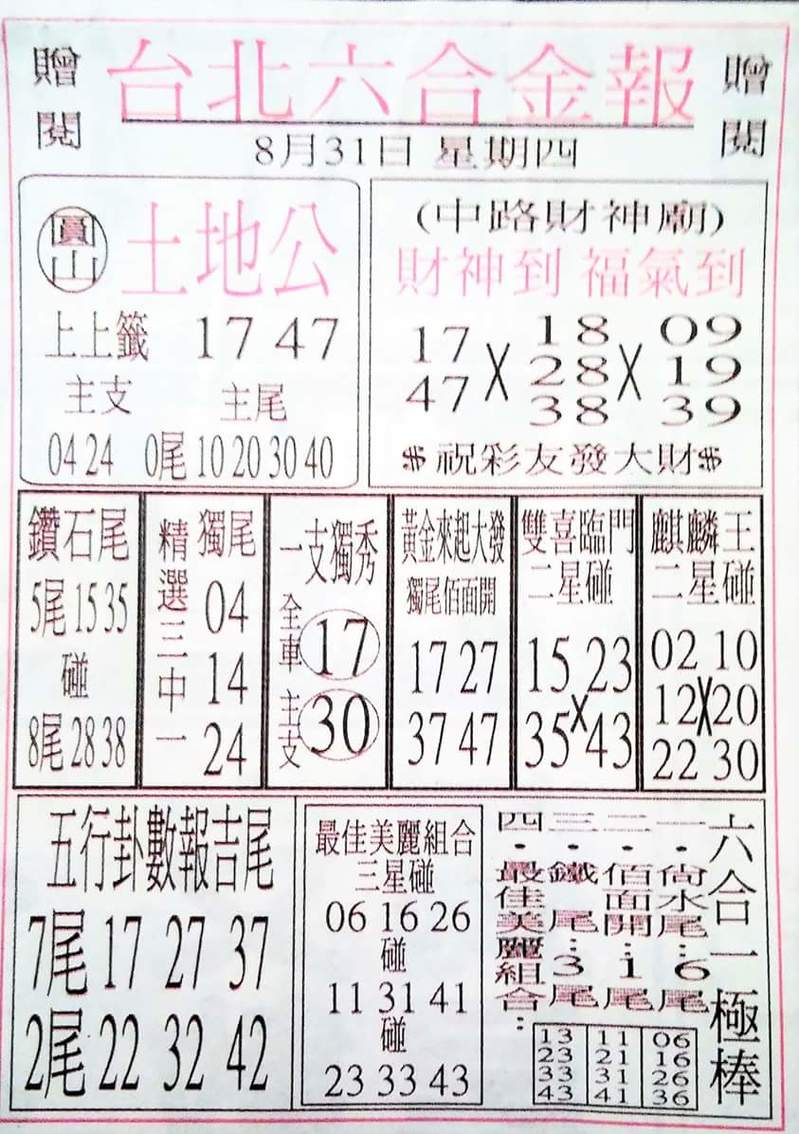 贈閱
台北六合金報
贈閱
8月31日 星期四
圓山
土地公
上上籤 17 47
主支 主尾
04 24 0尾 10 20 30 40
(中路財神廟)
財神到 福氣到
17 18 09
47 X 28 X 19
38 39
祝彩友發大財
鑽石尾
5尾 15 35
碰
8尾 28 38
精選三中一
獨尾
04
14
24
一支獨秀
全車 17
主支 30
黃金來起大發
獨尾佰面開
17 27
37 47
雙喜臨門
二星碰
15 23
X
35 43
麒麟王
二星碰
02 10
12 X 20
22 30
五行卦數報吉尾
7尾 17 27 37
2尾 22 32 42
最佳美麗組合
三星碰
06 16 26
碰
11 31 41
碰
23 33 43
六合一極棒
一.尚水尾:6尾
二.佰面開:1尾
三.鐵尾:3尾
四.最佳美麗組合:
13 11 06
23 21 16
33 31 26
43 41 36